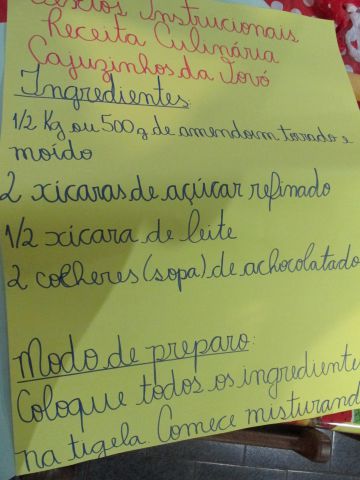 Textos Instrucionais
Receita Culinária
Cajuzinhos da Vovó
Ingredientes
1/2 Kg ou 500g de amendoim torrado e
moído
2 xícaras de açúcar refinado
1/2 xícara de leite
2 colheres (sopa) de achocolatado
Modo de preparo:
Coloque todos os ingrediente
na tigela. Comece misturand